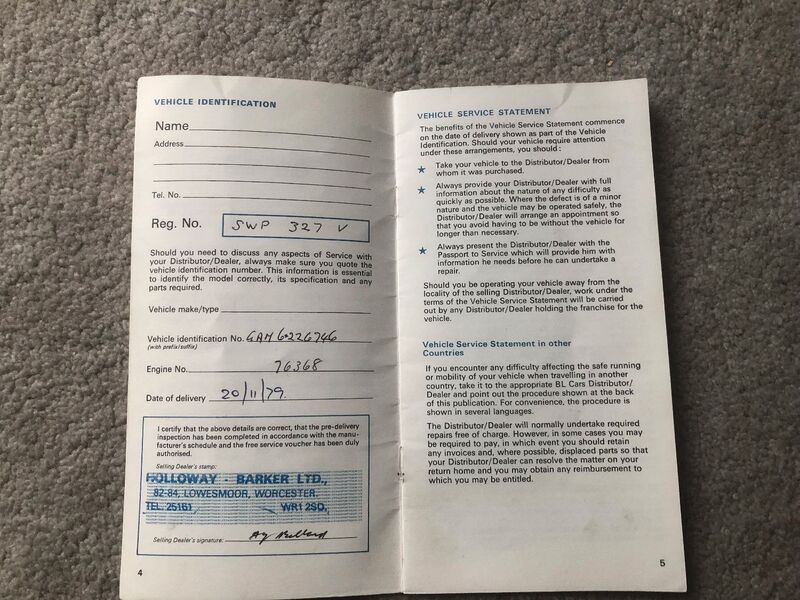 VEHICLE IDENTIFICATION
Name
Address
Tel. No.
Reg. No. SWP 327 V
Should you need to discuss any aspects of Service with
your Distributor/Dealer, always make sure you quote the
vehicle identification number. This information is essential
to identify the model correctly, its specification and any
parts required.
Vehicle make/type
Vehicle identification No. GAM6·226746
(with prefix/suffix)
Engine No. 76368
Date of delivery 20/11/79.
I certify that the above details are correct, that the pre-delivery
inspection has been completed in accordance with the manu-
facturer's schedule and the free service voucher has been duly
authorised.
Selling Dealer's stamp:
HOLLOWAY - BARKER LTD.,
82-84, LOWESMOOR, WORCESTER.
TEL. 25161 WR1 2SD.
Selling Dealer's signature:
4
VEHICLE SERVICE STATEMENT
The benefits of the Vehicle Service Statement commence
on the date of delivery shown as part of the Vehicle
Identification. Should your vehicle require attention
under these arrangements, you should :
★ Take your vehicle to the Distributor/Dealer from
whom it was purchased.
★ Always provide your Distributor/Dealer with full
information about the nature of any difficulty as
quickly as possible. Where the defect is of a minor
nature and the vehicle may be operated safely, the
Distributor/Dealer will arrange an appointment so
that you avoid having to be without the vehicle for
longer than necessary.
★ Always present the Distributor/Dealer with the
Passport to Service which will provide him with
information he needs before he can undertake a
repair.
Should you be operating your vehicle away from the
locality of the selling Distributor/Dealer, work under the
terms of the Vehicle Service Statement will be carried
out by any Distributor/Dealer holding the franchise for the
vehicle.
Vehicle Service Statement in other
Countries
If you encounter any difficulty affecting the safe running
or mobility of your vehicle when travelling in another
country, take it to the appropriate BL Cars Distributor/
Dealer and point out the procedure shown at the back
of this publication. For convenience, the procedure is
shown in several languages.
The Distributor/Dealer will normally undertake required
repairs free of charge. However, in some cases you may
be required to pay, in which event you should retain
any invoices and, where possible, displaced parts so that
your Distributor/Dealer can resolve the matter on your
return home and you may obtain any reimbursement to
which you may be entitled.
5